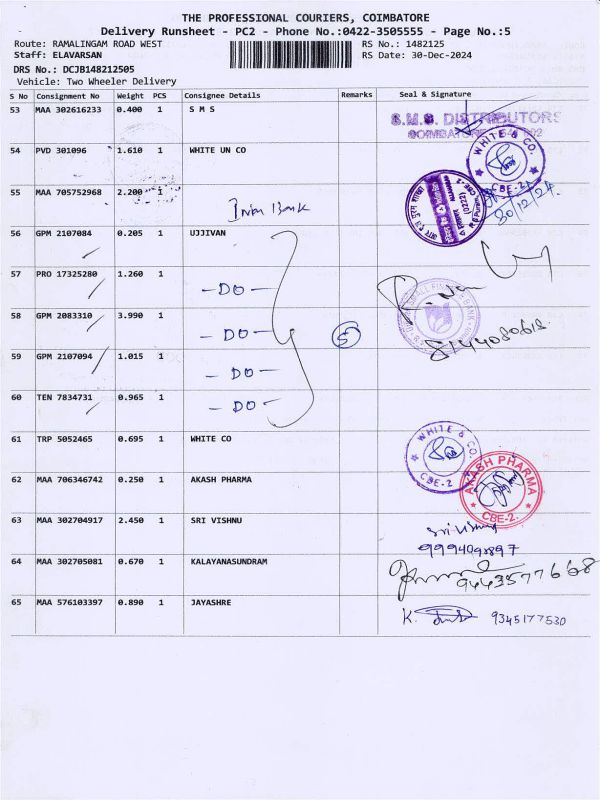 THE PROFESSIONAL COURIERS, COIMBATORE
Delivery Runsheet - PC2 - Phone No.:0422-3505555 - Page No.:5
Route: RAMALINGAM ROAD WEST RS No.: 1482125
Staff: ELAVARSAN RS Date: 30-Dec-2024
DRS No.: DCJB148212505
Vehicle: Two Wheeler Delivery
S No Consignment No Weight PCS Consignee Details Remarks Seal & Signature
53 MAA 302616233 0.400 1 S M S
S.M.S. DISTRIBUTORS
54 PVD 301096 1.610 1 WHITE UN CO
WHITE & CO.
CBE-2
30/12/24
55 MAA 705752968 2.200 1
Bank
56 GPM 2107084 0.205 1 UJJIVAN
57 PRO 17325280 1.260 1 -DO-
58 GPM 2083310 3.990 1 -DO- 5
8144080618
59 GPM 2107094 1.015 1 -DO-
60 TEN 7834731 0.965 1 -DO-
61 TRP 5052465 0.695 1 WHITE CO
WHITE & CO.
CBE-2
62 MAA 706346742 0.250 1 AKASH PHARMA
AKASH PHARMA
CBE-2.
63 MAA 302704917 2.450 1 SRI VISHNU
Sri Vishnu
64 MAA 302705081 0.670 1 KALAYANASUNDRAM
9443577668
65 MAA 576103397 0.890 1 JAYASHRE
K. 9345177530